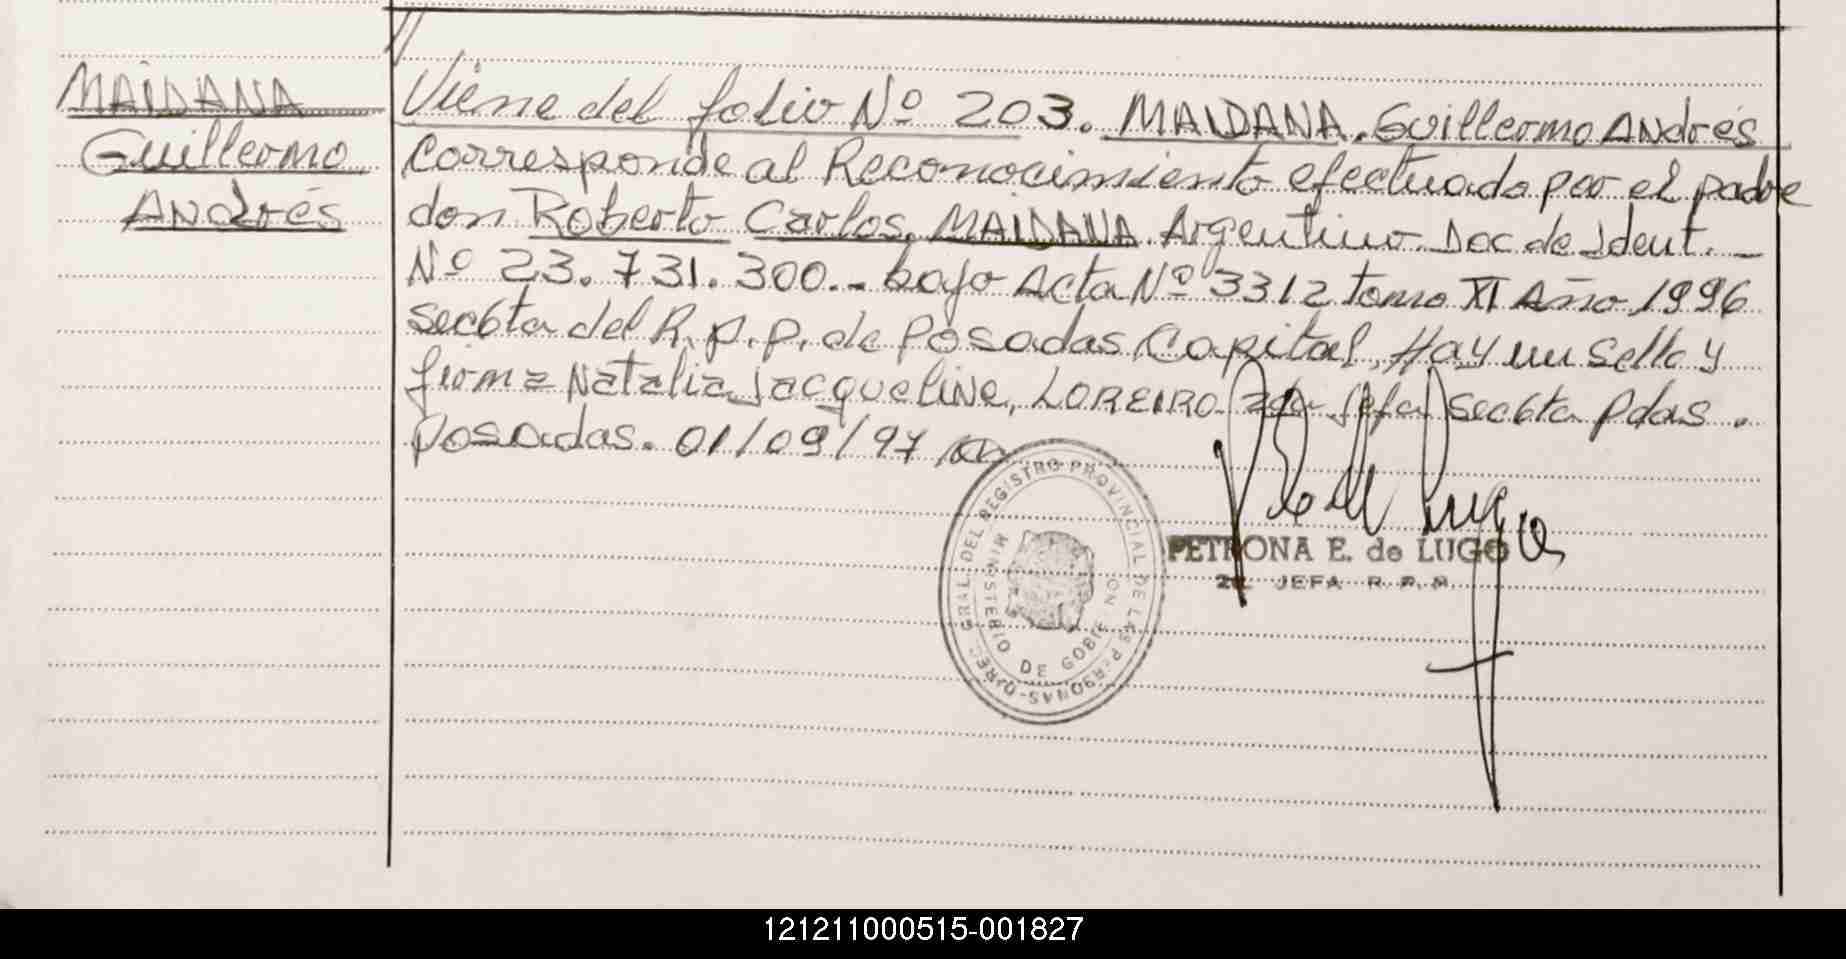 MAIDANA
Guillermo
Andrés
Viene del folio Nº 203. MAIDANA, Guillermo Andrés
Corresponde al Reconocimiento efectuado por el padre
don Roberto Carlos, MAIDANA. Argentino. Doc de Ident. _
Nº 23.731.300.- bajo Acta Nº 3312 tomo XI Año 1996
secc6ta del R.p.p. de Posadas, Capital, Hay un sello y
firma Natalia Jacqueline, LOREIRO 2da Jefa secc6ta Pdas.
Posadas. 01/09/97
DIREC. GRAL. DEL REGISTRO PROVINCIAL DE LAS PERSONAS
MINISTERIO DE GOBIERNO
PETRONA E. de LUGO
2a. JEFA R. P. P.
121211000515-001827